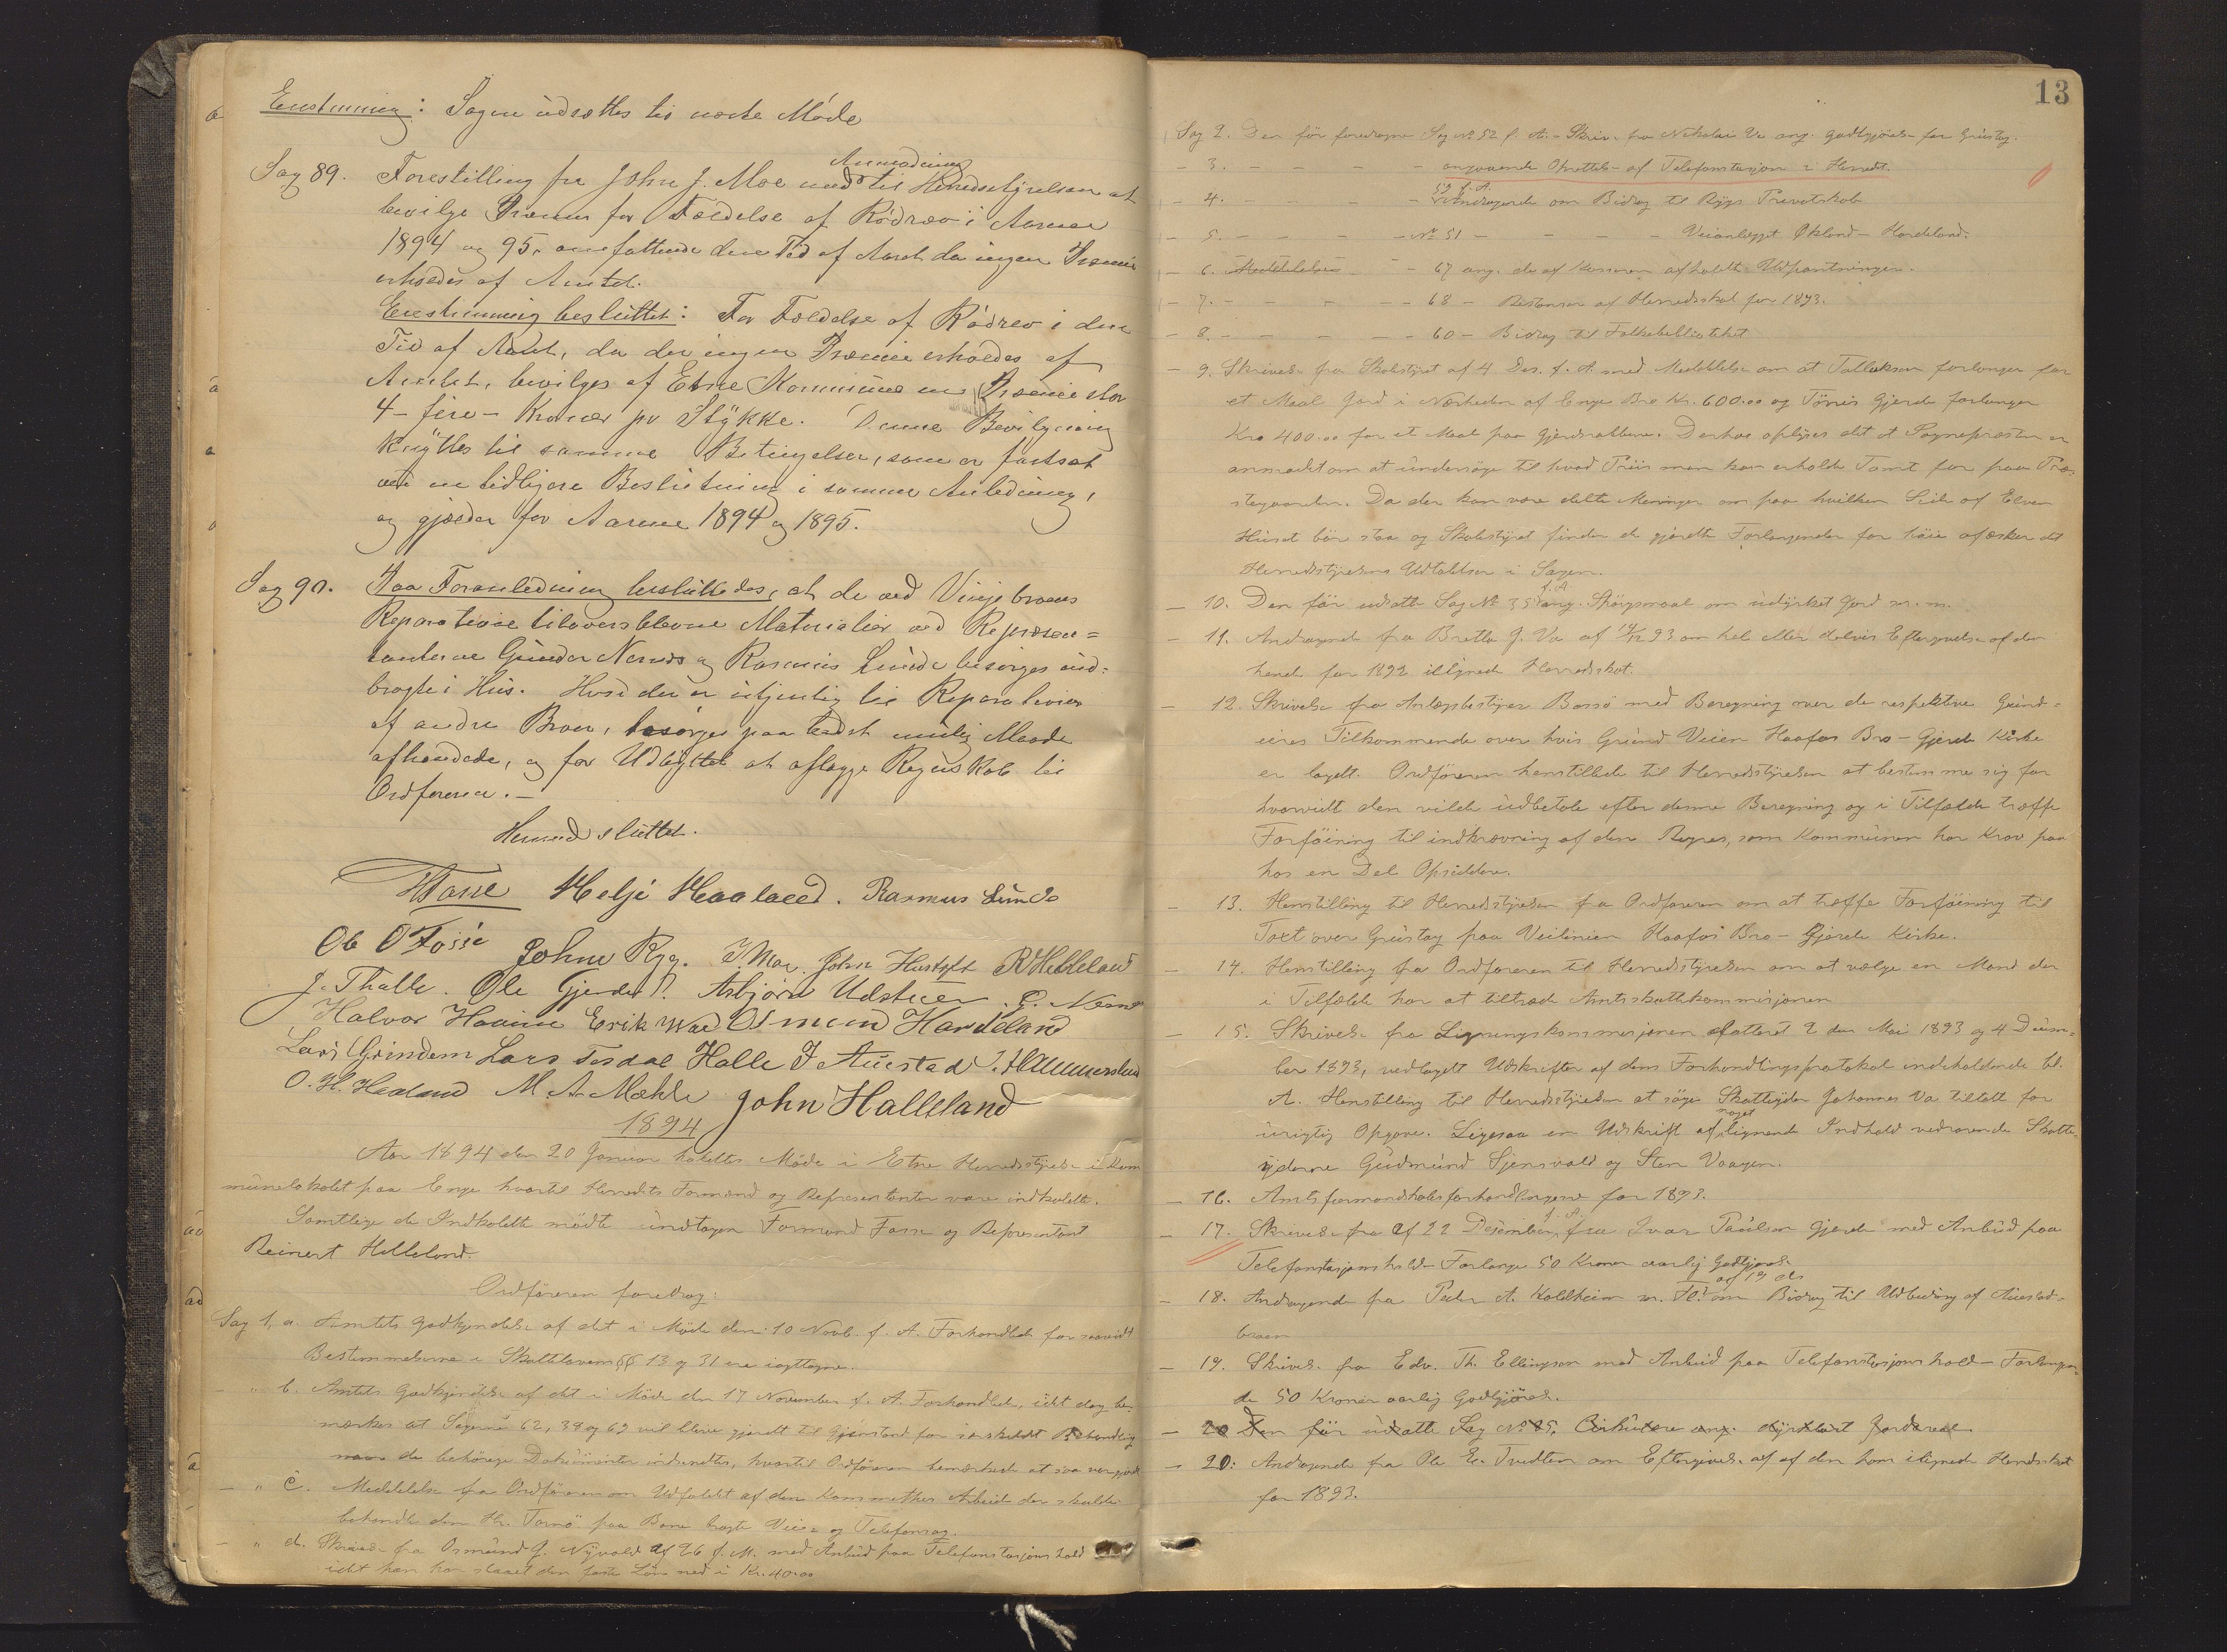 Enstemmig: Sagen udsættes til næste Møde
Sag 89. Forestilling fra John J. Moe med Anmodning til Herredsstyrelsen at
bevilge Præmie for Fældelse af Rødræv i Aarene
1894 og 95, omfattende den Tid af Aaret da ingen Præmie
erholdes af Amtet.
Enstemmig besluttet: For Fældelse af Rødrev i den
Tid af Aaret, da der ingen Præmie erholdes af
Amtet, bevilges af Etne Kommune en Præmie stor
4 - fire - Kroner pr Stykke. Denne Bevilgning
knyttes til samme Betingelser, som er fastsat
ved en tidligere Beslutning i samme Anledning,
og gjælder for Aarene 1894 og 1895.
Sag 90. Paa Foranledning besluttedes, at de ved Vinjebroens
Reparation tiloversblevne Materialier ved Repræsen=
tanterne Gunder Nernes og Rasmus Lunde besørges ind=
bragte i Hus. Hvad der er utjenlig til Reparationer
af andre Broer, besørges paa bedst mulig Maade
afhændede, og for Udbyttet at aflægge Regnskab til
Ordføreren. -
Hermed sluttet.
HFosse Helje Haaland. Rasmus Lunde
Ole O Fosse John Ryg. J. Moe. John Hustoft R Helleland
J. Thalle. Ole Gjerde. Asbjørn Udstuen. G. Nernes
Halvor Haaim Erik Moe Osmund Hardeland
Lars Grindem Lars Tesdal Halle J Auestad J. Hammerslund
O. H. Hetland M. A. Mæhle John Halleland
1894
Aar 1894 den 20 Januar holdtes Møde i Etne Herredsstyrelse i Kom
munelokalet paa Enge hvortil Herredets Formænd og Representanter vare indkaldte.
Samtlige de Indkaldte mødte undtagen Formand Fosse og Representant
Reinert Helleland.
Ordføreren foredrog:
Sag 1, a. Amtets Godkjendelse af det i Møde den 10 Novb. f. A. Forhandlede forsaavidt
Bestemmelserne i Skattelovens §§ 13 og 31 ere iagttagne.
- " b. Amtets Godkjendelse af det i Møde den 17 November f. A. Forhandlede, idet dog be-
mærkes at Sagerne 62, 38 og 69 vil blive gjordt til Gjenstand for særskildt Behandling
naar de behørige Dokumenter indsendtes, hvortil Ordføreren bemærkede at saa var gjordt
- " c. Meddelelse fra Ordføreren om Udfaldet af den Kommites Arbeide der skulde
behandle den Hr. Tornø paa Bane bragte Veie- og Telefonsag.
- " d. Skrivelse fra Osmund J. Nyvold af 26 f. M. med Anbud paa Telefonstasjons hold
idet han har slaaet den faste Løn ned i Kr. 40.00
13
Sag 2. Den før foredragne Sag No 52 f. A. - Skriv. fra Nikolai Va ang. godtgjørelse for Grustag.
- 3. - - - - - angaaende Oprettelse af Telefonstasjon i Herredet.
- 4. - - - - - 59 f. A. Andragende om Bidrag til Rygs Privatskole
- 5. - - - - - No 51 - - - - - Veianlægget Økland - Hardeland.
- 6. Meddelelse - - 67 ang. de af Kasseren afholdte Udpantninger.
- 7. - - - - - 68 - Restancer af Herredsskat for 1893.
- 8. - - - - - 60 - Bidrag til Folkebibliotekit
- 9. Skrivelse fra Skolestyret af 4 Des. f. A. med Meddelelse om at Tollaksen forlanger for
et Maal Jord i Nærheden af Enge Bro Kr. 600.00 og Tønnes Gjerde forlanger
Kro 400.00 for et Maal paa Gjerdsrabbene. Derhos oplyses det at Sognepresten er
anmodet om at undersøge til hvad Priis man kan erholde Tomt for paa Præ-
stegaarden. Da der kan være delte Meninger om paa hvilken Side af Elven
Huset bør staa og Skolestyret finder de gjordte Forlangender for høie afæsker det
Herredsstyrelsens Udtalelser i Sagen.
- 10. Den før udsatte Sag No 35 f. A. ang. Skjøgsmaal om udyrket Jord m. m.
- 11. Andragende fra Bretla J. Va af 14/12 93 om hel eller delvis Eftergivelse af den
hende for 1892 ilignede Herredsskat.
- 12. Skrivelse fra Anlægsbestyrer Barsø med Beregning over de respektive Grund=
eieres Tilkommende over hvis Grund Veien Haafos Bro - Gjerde Kirke
er lagdt. Ordføreren henstillede til Herredsstyrelsen at bestemme sig for
hvorvidt den vilde udbetale efter denne Beregning og i Tilfælde træffe
Forføining til indkrævning af den Regres, som Kommunen har Krav paa
hos en Del Opsiddere.
- 13. Henstilling til Herredsstyrelsen fra Ordføreren om at træffe Forføining til
Taxt over Grustag paa Veilinien Haafos Bro - Gjerde Kirke.
- 14. Henstilling fra Ordføreren til Herredsstyrelsen om at vælge en Mand der
i Tilfælde har at tiltræde Amtsskattekommisjonen
- 15. Skrivelse fra Ligningskommisjonen datteret 2 den Mai 1893 og 4 Decem=
ber 1893, vedlagdt Udskrifter af dens Forhandlingsprotokol indeholdende bl.
A. Henstilling til Herredsstyrelsen at søge Skatteyder Johannes Va tiltalt for
urigtig Opgave. Ligesaa en Udskrift af noget lignende Indhold vedrørende Skatte-
yderne Gudmund Sjensvold og Sten Vaagen.
- 16. Amtsformandskabsforhandlingerne for 1893.
- 17. Skrivelse fra af 22 Desember f. A. fra Ivar Paulsen Gjerde med Anbud paa
Telefonstasjonshold - Forlange 50 Kroner aarlig Godtgjørelse.
- 18. Andragende fra Peder A. Koldheim m. Fl. af 19 ds om Bidrag til Udbedring af Auestad-
broen
- 19. Skrivelse fra Edv. Th. Ellingsen med Anbud paa Telefonstasjons hold - Forlangen-
de 50 Kroner aarlig Godtgjørelse.
- 20 Den før udsatte Sag No 85. Cirkulære ang. dyrkbart Jordareal
- 20: Andragende fra Ole E. Tvedten om Eftergivelse af den ham ilignede Herredsskat
for 1893.